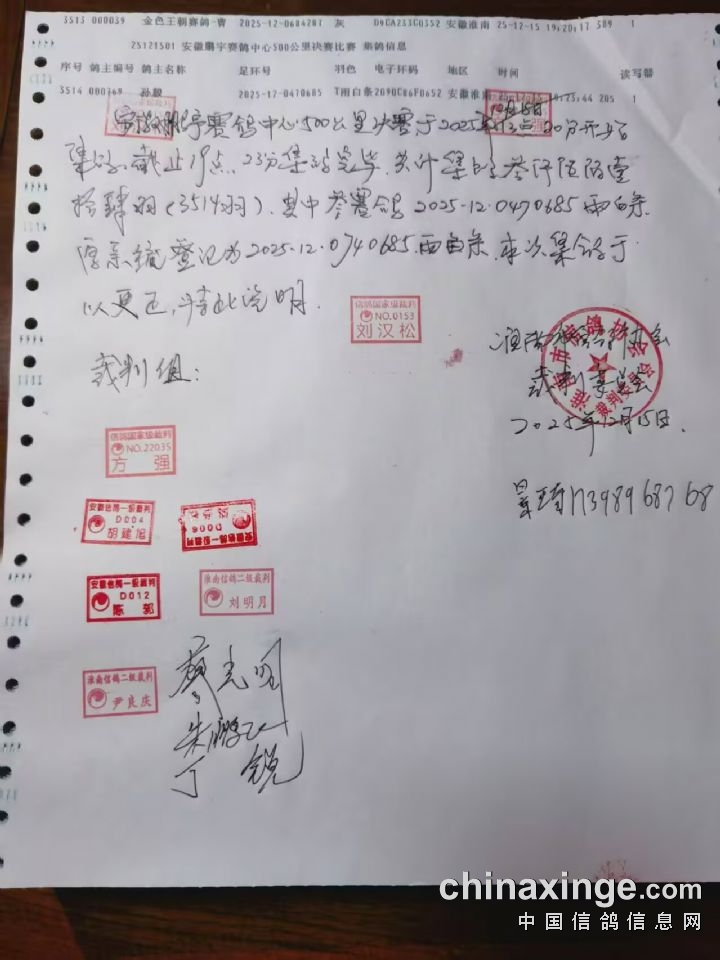 3513 000039 金色王朝赛鸽-曹 2025-12-0684287 灰 D4CA233C0352 安徽淮南 25-12-15 19:20:17 389 1
25121501 安徽鹏宇赛鸽中心500公里决赛比赛 集鸽信息
序号 鸽主编号 鸽主名称 足环号 羽色 电子环码 地区 时间 读写器
3514 000768 孙毅 2025-12-0470685 T雨白条 2090C86F0652 安徽淮 :23:44 205 1
安徽鹏宇赛鸽中心500公里决赛于2025年12月15日 点30分开始
集鸽,截止19点23分集鸽完毕,共计集鸽叁仟伍佰壹
拾肆羽(3514羽).其中参赛鸽2025-12-0470685雨白条
原系统登记为2025-12-0740685.雨白条.本次集鸽予
以更正,特此说明.
信鸽国家级裁判
NO.0153
刘汉松
淮南市信鸽协会
裁判委员会
2025年12月15日.
裁判组:
信鸽国家级裁判
NO.22035
方强
安徽信鸽一级裁判
D004
胡建伦
安徽信鸽一级裁判
D006
1398968768
安徽信鸽一级裁判
D012
陈郭
淮南信鸽二级裁判
刘明月
淮南信鸽二级裁判
尹良庆
廖光明
朱鹏飞
丁锐
chinaxinge.com
中国信鸽信息网